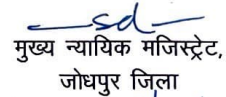 sd
मुख्य न्यायिक मजिस्ट्रेट,
जोधपुर जिला